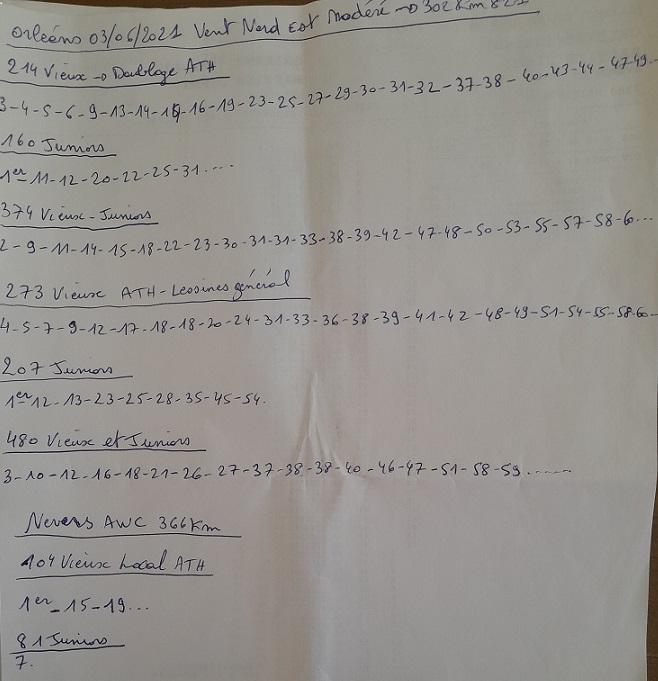 Orléans 03/06/2021 Vent Nord Est Modéré → 302 Km 821
214 Vieux → Doublage ATH
3-4-5-6-9-13-14-15-16-19-23-25-27-29-30-31-32-37-38-40-43-44-47-49...
160 Juniors
1er 11-12-20-22-25-31....
374 Vieux-Juniors
2-9-11-14-15-18-22-23-30-31-31-33-38-39-42-47-48-50-53-55-57-58-60...
273 Vieux ATH-Lessines général
4-5-7-9-12-17-18-18-20-24-31-33-36-38-39-41-42-48-49-51-54-55-58-60...
207 Juniors
1er 12-13-23-25-28-35-45-54.
480 Vieux et Juniors
3-10-12-16-18-21-26-27-37-38-38-40-46-47-51-58-59.......
Nevers AWC 366Km
104 Vieux Local ATH
1er-15-19...
81 Juniors
7.